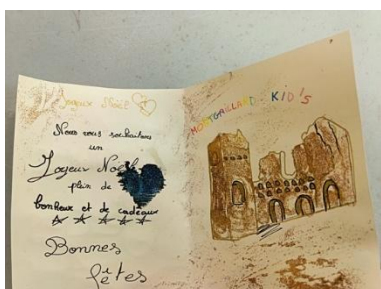 Joyeux Noël
Nous vous souhaitons
un
Joyeux Noël
plein de
bonheur et de cadeaux
Bonnes
fêtes
MONTGAILLARD KID'S